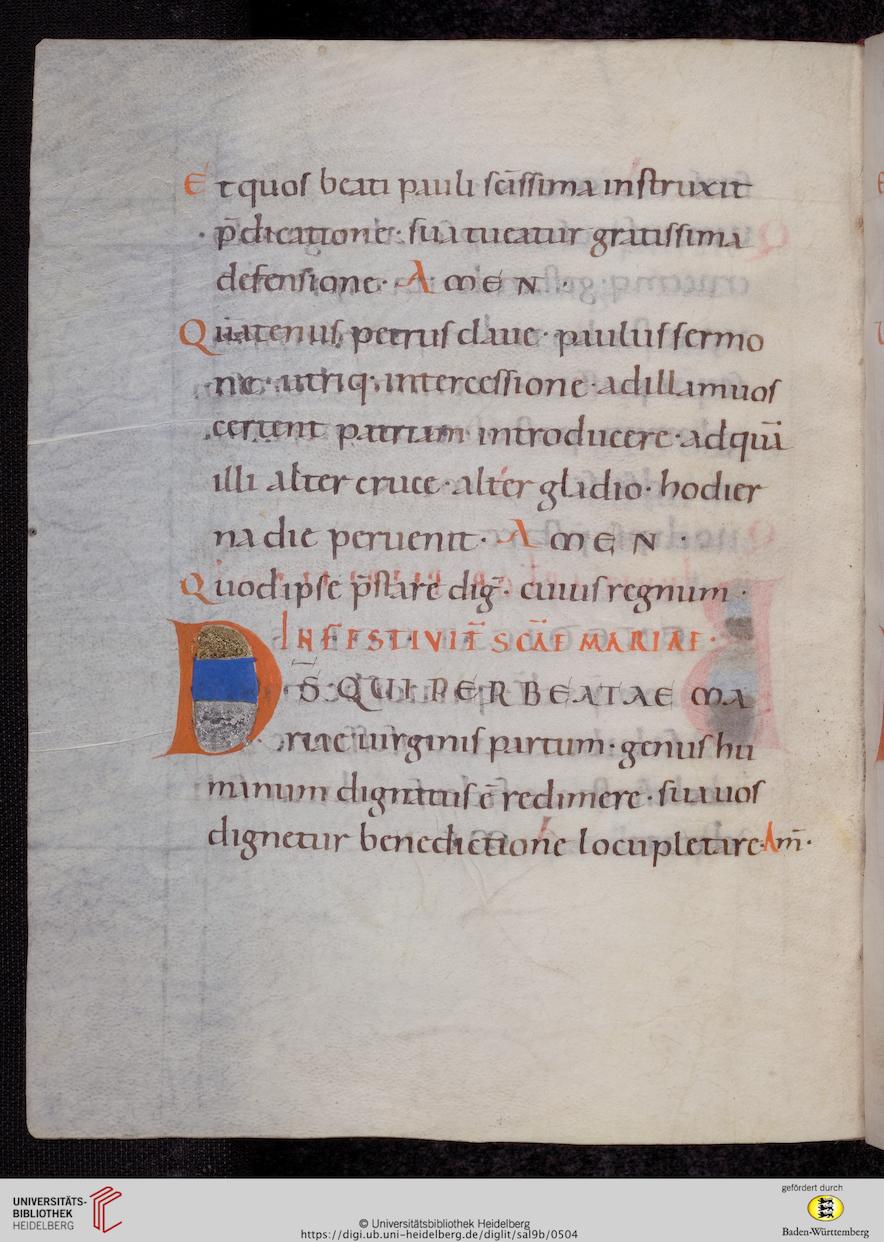 Et quos beati pauli scīssima instruxit
p̄dicatione · sua tueatur gratissima
defensione · AMEN ·
Quatenus petrus claue · paulus sermo
ne · utriq; intercessione · ad illam uos
certent patriam introducere · ad quā
illi alter cruce · alter gladio · hodier
na die peruenit · AMEN ·
Quod ipse p̄stare diḡ · cuius regnum ·
IN FESTIVIT̄ SC̄AE MARIAE ·
D̄S · QUI PER BEATAE MA
riae uirginis partum · genus hu
manum dignatus ē redimere · sua uos
dignetur benedictione locupletare · Am̄ ·
UNIVERSITÄTS-
BIBLIOTHEK
HEIDELBERG
© Universitätsbibliothek Heidelberg
https://digi.ub.uni-heidelberg.de/diglit/sal9b/0504
gefördert durch
Baden-Württemberg